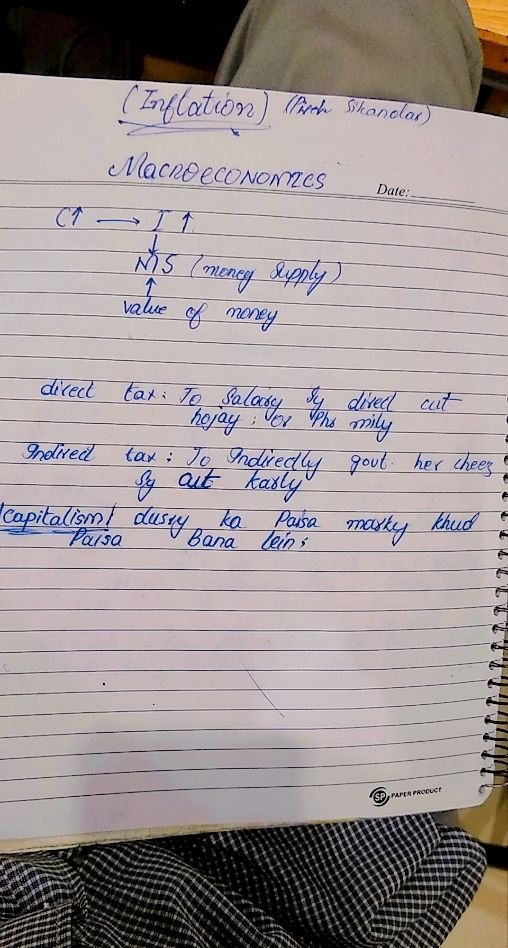 (Inflation) Sikandar)
Macroeconomics
Date:
C↑ → I ↑
↓
MS (money supply)
↑
value of money
direct tax: Jo Salary sy direct cut
hojay; or Phr mily
Indirect tax: Jo Indirectly govt. her cheez
sy cut karly
|Capitalism| dusry ka Paisa marky khud
Paisa Bana lein;
SP PAPER PRODUCT